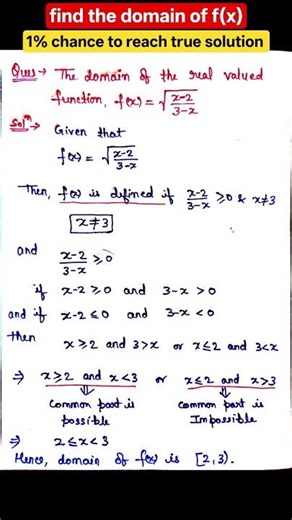 find the domain of f(x)
1% chance to reach true solution
Ques → The domain of the real valued
function, f(x) = √((x-2)/(3-x))
Solⁿ → Given that
f(x) = √((x-2)/(3-x))
Then, f(x) is defined if (x-2)/(3-x) ≥ 0 & x≠3
x≠3
and (x-2)/(3-x) ≥ 0
if x-2 ≥ 0 and 3-x > 0
and if x-2 ≤ 0 and 3-x < 0
then
x ≥ 2 and 3 > x or x ≤ 2 and 3 < x
⇒ x ≥ 2 and x < 3 or x ≤ 2 and x > 3
⇓ ⇓
Common part is possible
Common part is Impossible
⇒ 2 ≤ x < 3
Hence, domain of f(x) is [2,3).